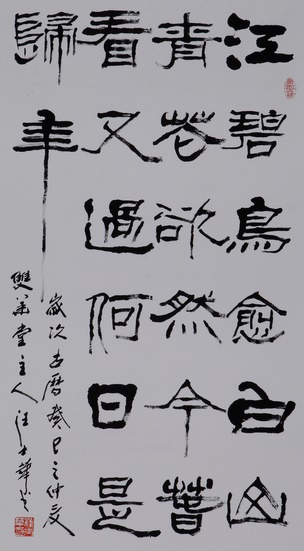 江碧鳥愈白山
青花欲然今春
看又過何日是
歸年
歲次古曆癸巳之仲夏
雙堂主人汪士華